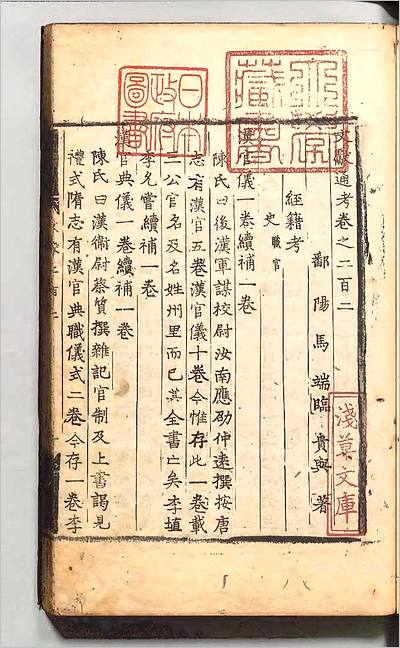 文獻通考卷之二百二
鄱陽馬端臨貴與著
經籍考
史 職官
漢官儀一卷續補一卷
陳氏曰後漢軍謀校尉汝南應劭仲遠撰按唐
志有漢官五卷漢官儀十卷今惟存此一卷載
三公官名及名姓州里而已其全書亡矣李埴
季允嘗續補一卷
漢官典儀一卷續補一卷
陳氏曰漢衛尉蔡質撰雜記官制及上書謁見
禮式隋志有漢官典職儀式二卷今存一卷李
日本
政府
圖書
淺草文庫